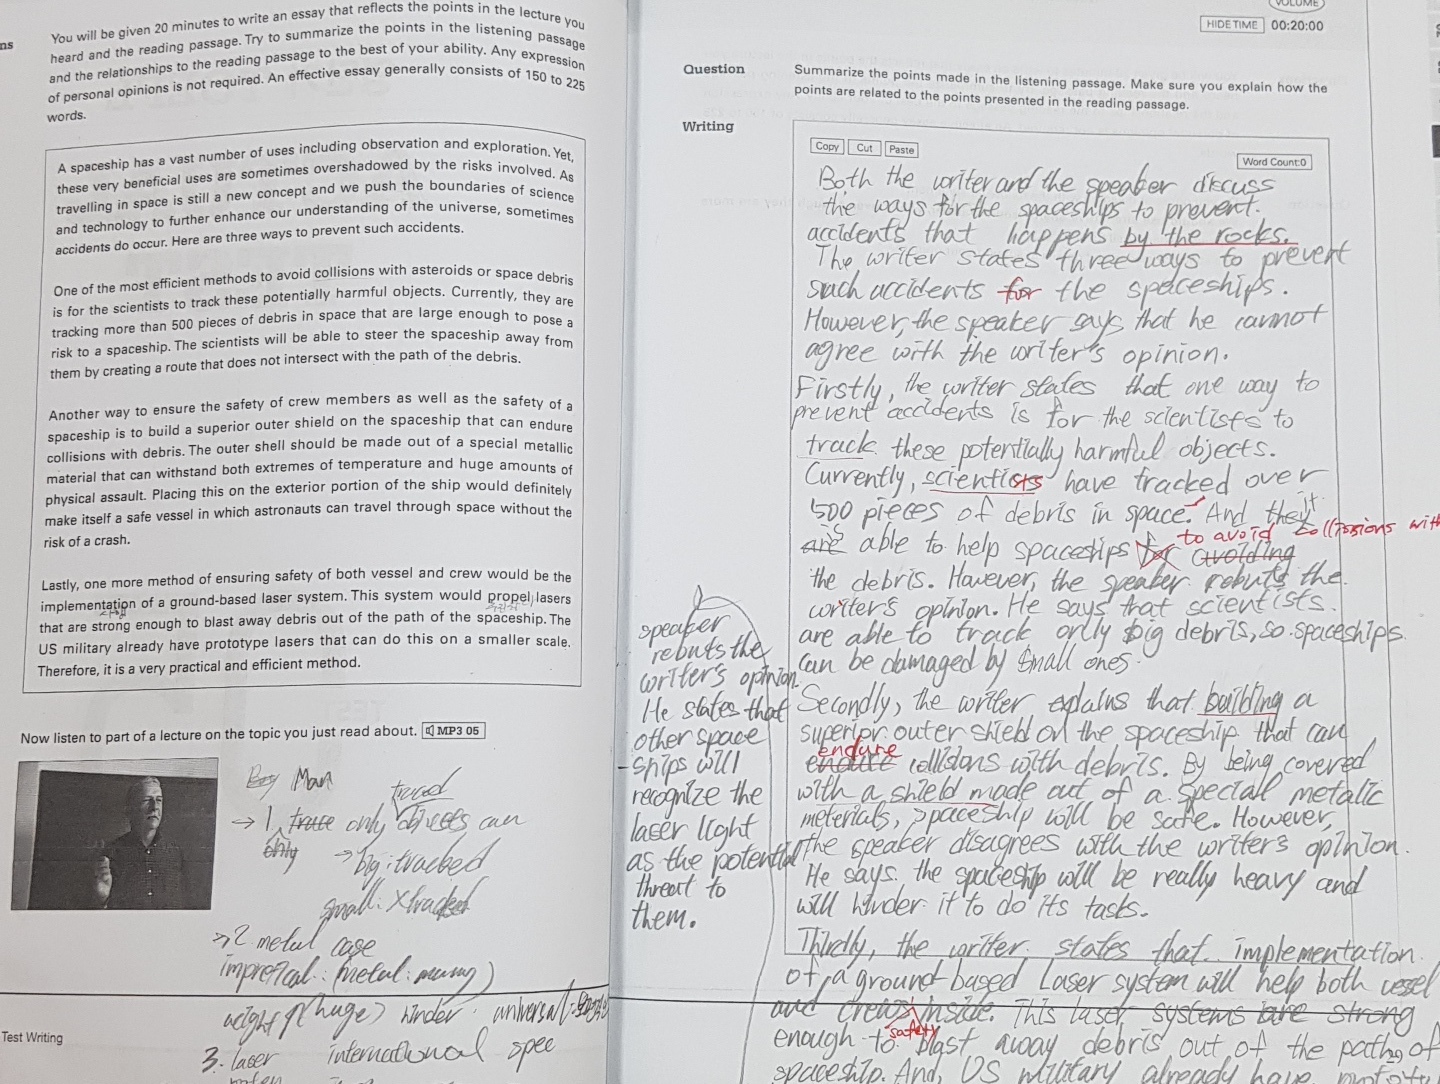 ns
You will be given 20 minutes to write an essay that reflects the points in the lecture you
heard and the reading passage. Try to summarize the points in the listening passage
and the relationships to the reading passage to the best of your ability. Any expression
of personal opinions is not required. An effective essay generally consists of 150 to 225
words.
A spaceship has a vast number of uses including observation and exploration. Yet,
these very beneficial uses are sometimes overshadowed by the risks involved. As
travelling in space is still a new concept and we push the boundaries of science
and technology to further enhance our understanding of the universe, sometimes
accidents do occur. Here are three ways to prevent such accidents.
One of the most efficient methods to avoid collisions with asteroids or space debris
is for the scientists to track these potentially harmful objects. Currently, they are
tracking more than 500 pieces of debris in space that are large enough to pose a
risk to a spaceship. The scientists will be able to steer the spaceship away from
them by creating a route that does not intersect with the path of the debris.
Another way to ensure the safety of crew members as well as the safety of a
spaceship is to build a superior outer shield on the spaceship that can endure
collisions with debris. The outer shell should be made out of a special metallic
material that can withstand both extremes of temperature and huge amounts of
physical assault. Placing this on the exterior portion of the ship would definitely
make itself a safe vessel in which astronauts can travel through space without the
risk of a crash.
Lastly, one more method of ensuring safety of both vessel and crew would be the
implementation of a ground-based laser system. This system would propel lasers
that are strong enough to blast away debris out of the path of the spaceship. The
US military already have prototype lasers that can do this on a smaller scale.
Therefore, it is a very practical and efficient method.
Now listen to part of a lecture on the topic you just read about. MP3 06
Boy Man
traced
→ 1. trace only objects can
only → big: tracked
small: X tracked
→ 2. metal case
(metal: many)
weight ↑ (huge) hinder universal
3. laser international
Test Writing
VOLUME
HIDE TIME 00:20:00
Question
Summarize the points made in the listening passage. Make sure you explain how the
points are related to the points presented in the reading passage.
Writing
Copy Cut Paste
Word Count:0
Both the writer and the speaker discuss
the ways for the spaceships to prevent.
accidents that happens by the rocks.
The writer states three ways to prevent
such accidents for the spaceships.
However, the speaker says that he cannot
agree with the writer's opinion.
Firstly, the writer states that one way to
prevent accidents is for the scientists to
track these potentially harmful objects.
Currently, scientists have tracked over
500 pieces of debris in space. And they it
are able to help spaceships for avoiding to avoid collisions with
the debris. However, the speaker rebuts the
writer's opinion. He says that scientists.
are able to track only big debris, so spaceships
can be damaged by small ones.
Secondly, the writer explains that building a
superior outer shield on the spaceship that can
endure endure collisions with debris. By being covered
with a shield made out of a special metalic
meterials, spaceship will be safe. However,
the speaker disagrees with the writer's opinion.
He says the spaceship will be really heavy and
will hinder it to do its tasks.
Thirdly, the writer states that implementation
of a ground-based Laser system will help both vessel
and crews inside. This laser systems are strong
safety
enough to blast away debris out of the path of
spaceship. And, US military already have
speaker
rebuts the
writer's opinion.
He states that
other space
-ships will
recognize the
laser light
as the potential
threat to
them.